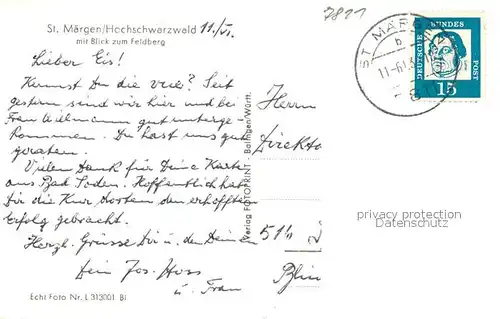 7811
St. Märgen/Hochschwarzwald 11./VI.
mit Blick zum Feldberg
Lieber Eis!
Kennst Du die vier? Seit
gestern sind wir hier und bei
Frau gut unterge-
kommen. Du hast uns gut
geraten.
Vielen Dank für Deine Karte
aus Bad Soden. Hoffentlich hat
Dir die Kur dorten den erhofften
Erfolg gebracht.
Herzl. Grüsse Dir u. den Deinen
Dein Jos.
u. Frau
Echt Foto Nr. L 313001 Bl
Verlag FOTOPRINT - Balingen/Württ.
Herrn
Direkto
ST. MÄRG
b
DEUTSCHE BUNDES POST
15
privacy protection
Datenschutz